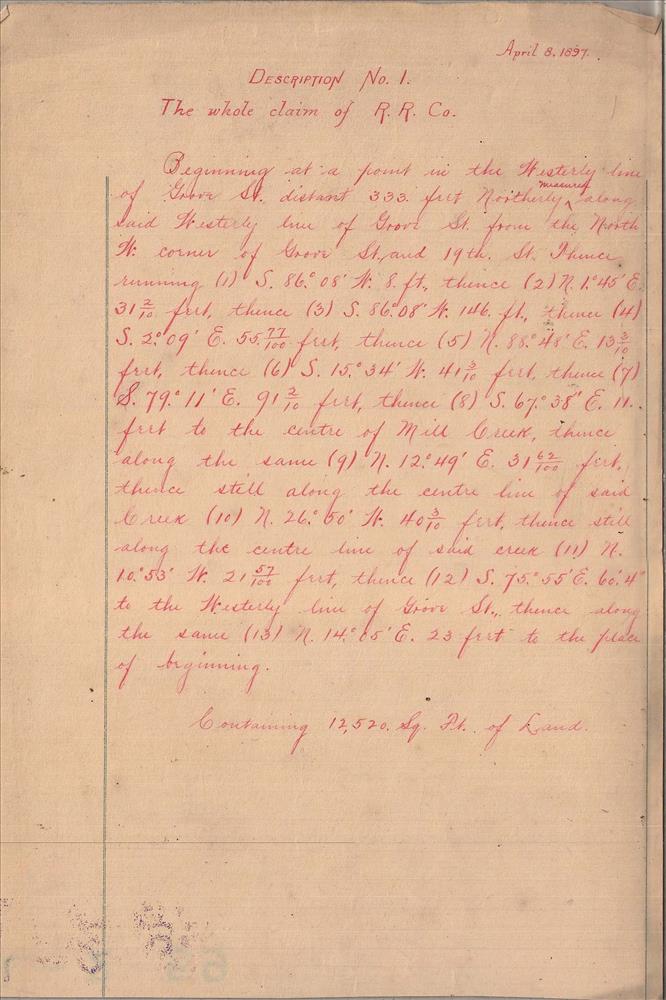 April 8. 1897.
Description No. 1.
The whole claim of R. R. Co.
Beginning at a point in the Westerly line
of Grove St. distant 333. feet Northerly measured along
said Westerly line of Grove St. from the North
W. corner of Grove St. and 19th. St. Thence
running (1) S. 86.° 08' W. 8. ft., thence (2) N. 1.° 45' E.
31 2/10 feet, thence (3) S. 86.° 08' W. 146. ft., thence (4)
S. 2.° 09' E. 55. 77/100 feet, thence (5) N. 88.° 48' E. 13 3/10
feet, thence (6) S. 15.° 34' W. 41 3/10 feet, thence (7)
S. 79.° 11' E. 91 2/10 feet, thence (8) S. 67.° 38' E. 11.
feet to the centre of Mill Creek, thence
along the same (9) N. 12.° 49' E. 31 62/100 feet,
thence still along the centre line of said
Creek (10) N. 26.° 50' W. 40 3/10 feet, thence still
along the centre line of said creek (11) N.
10.° 53' W. 21 57/100 feet, thence (12) S. 75.° 55' E. 60.' 4"
to the Westerly line of Grove St., thence along
the same (13) N. 14.° 05' E. 23 feet to the place
of beginning.
Containing 12,520. Sq. Ft. of Land.